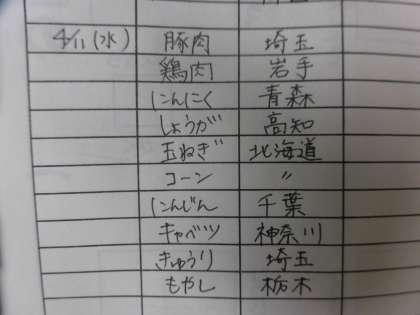 4/11(水) 豚肉 埼玉
鶏肉 岩手
にんにく 青森
しょうが 高知
玉ねぎ 北海道
コーン 〃
にんじん 千葉
キャベツ 神奈川
きゅうり 埼玉
もやし 栃木